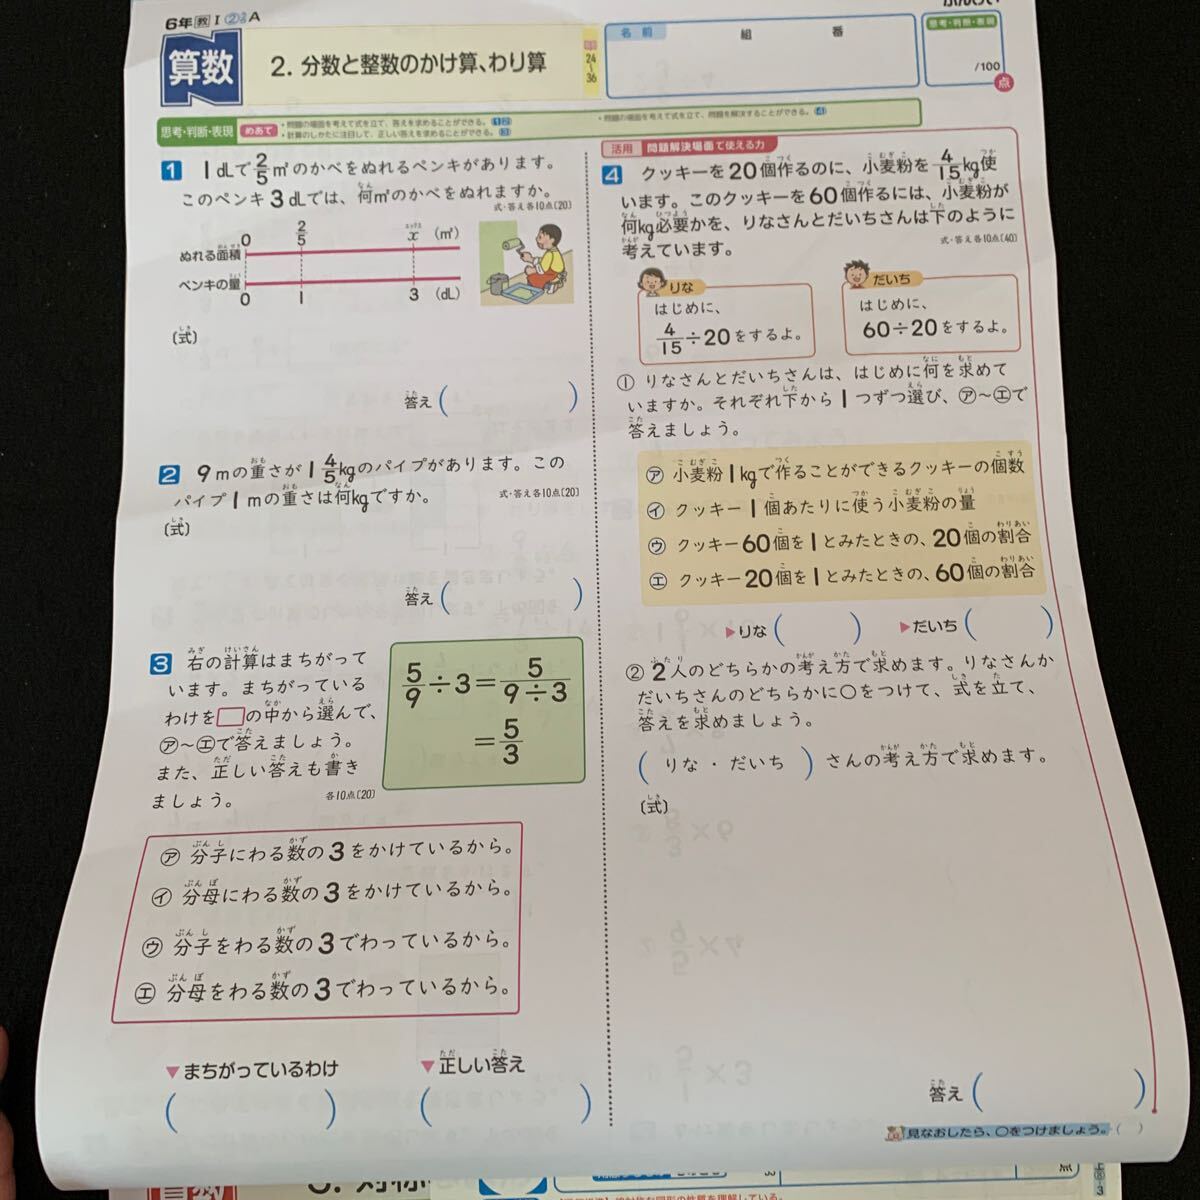 6年 教 I ② A
算数
2. 分数と整数のかけ算、わり算
24~36
名前 組 番
思考・判断・表現
/100
点
思考・判断・表現 めあて
・問題の場面を考えて式を立て、答えを求めることができる。 1 2
・計算のしかたに注目して、正しい答えを求めることができる。 3
・問題の場面を考えて式を立て、問題を解決することができる。 4
1 1dLで2/5㎡のかべをぬれるペンキがあります。
このペンキ3dLでは、何㎡のかべをぬれますか。
式・答え各10点〔20〕
0 2/5 x (㎡)
ぬれる面積
ペンキの量
0 1 3 (dL)
〔式〕
答え( )
2 9mの重さが1 4/5kgのパイプがあります。この
パイプ1mの重さは何kgですか。
式・答え各10点〔20〕
〔式〕
答え( )
3 右の計算はまちがって
います。まちがっている
わけを□の中から選んで、
㋐~㋓で答えましょう。
また、正しい答えも書き
ましょう。
各10点〔20〕
5/9÷3=5/9÷3
=5/3
㋐ 分子にわる数の3をかけているから。
㋑ 分母にわる数の3をかけているから。
㋒ 分子をわる数の3でわっているから。
㋓ 分母をわる数の3でわっているから。
▼まちがっているわけ
( )
▼正しい答え
( )
活用 問題解決場面で使える力
4 クッキーを20個作るのに、小麦粉を4/15kg使
います。このクッキーを60個作るには、小麦粉が
何kg必要かを、りなさんとだいちさんは下のように
考えています。
式・答え各10点〔40〕
りな
はじめに、
4/15÷20をするよ。
だいち
はじめに、
60÷20をするよ。
① りなさんとだいちさんは、はじめに何を求めて
いますか。それぞれ下から1つずつ選び、㋐~㋓で
答えましょう。
㋐ 小麦粉1kgで作ることができるクッキーの個数
㋑ クッキー1個あたりに使う小麦粉の量
㋒ クッキー60個を1とみたときの、20個の割合
㋓ クッキー20個を1とみたときの、60個の割合
▶りな( ) ▶だいち( )
② 2人のどちらかの考え方で求めます。りなさんか
だいちさんのどちらかに○をつけて、式を立て、
答えを求めましょう。
( りな・だいち )さんの考え方で求めます。
〔式〕
答え( )
見なおしたら、○をつけましょう。( )
算数
点